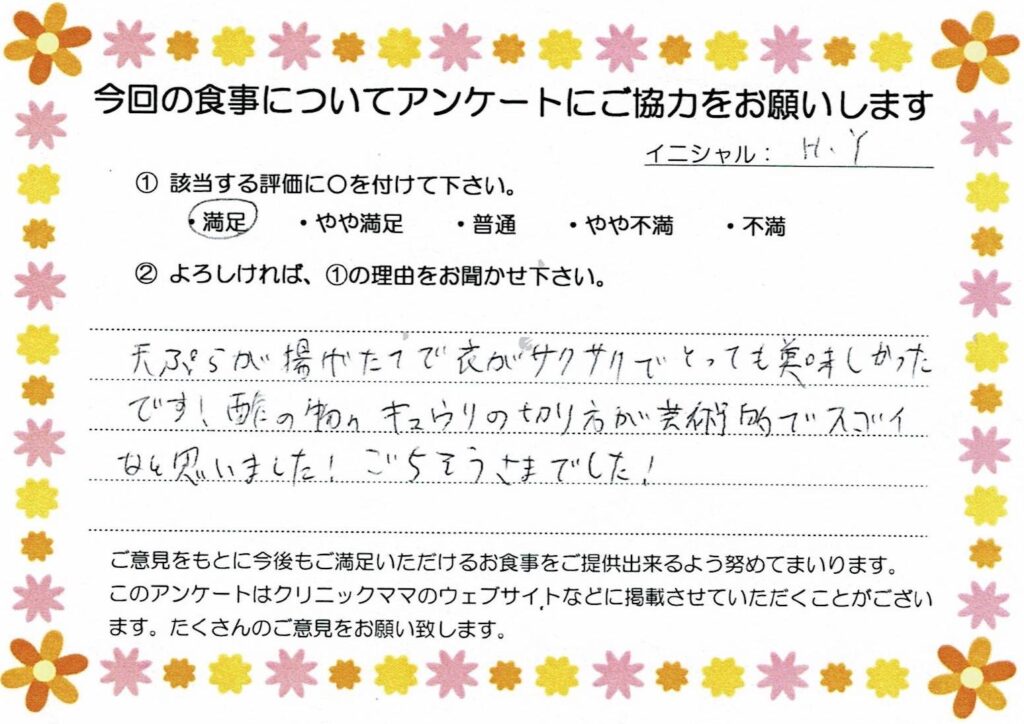 今回の食事についてアンケートにご協力をお願いします
イニシャル： H.Y
① 該当する評価に○を付けて下さい。
・満足 ・やや満足 ・普通 ・やや不満 ・不満
② よろしければ、①の理由をお聞かせ下さい。
天ぷらが揚げたてで衣がサクサクでとっても美味しかった
です！酢の物のキュウリの切り方が芸術的でスゴイ
なと思いました！ごちそうさまでした！
ご意見をもとに今後もご満足いただけるお食事をご提供出来るよう努めてまいります。
このアンケートはクリニックママのウェブサイトなどに掲載させていただくことがござい
ます。たくさんのご意見をお願い致します。